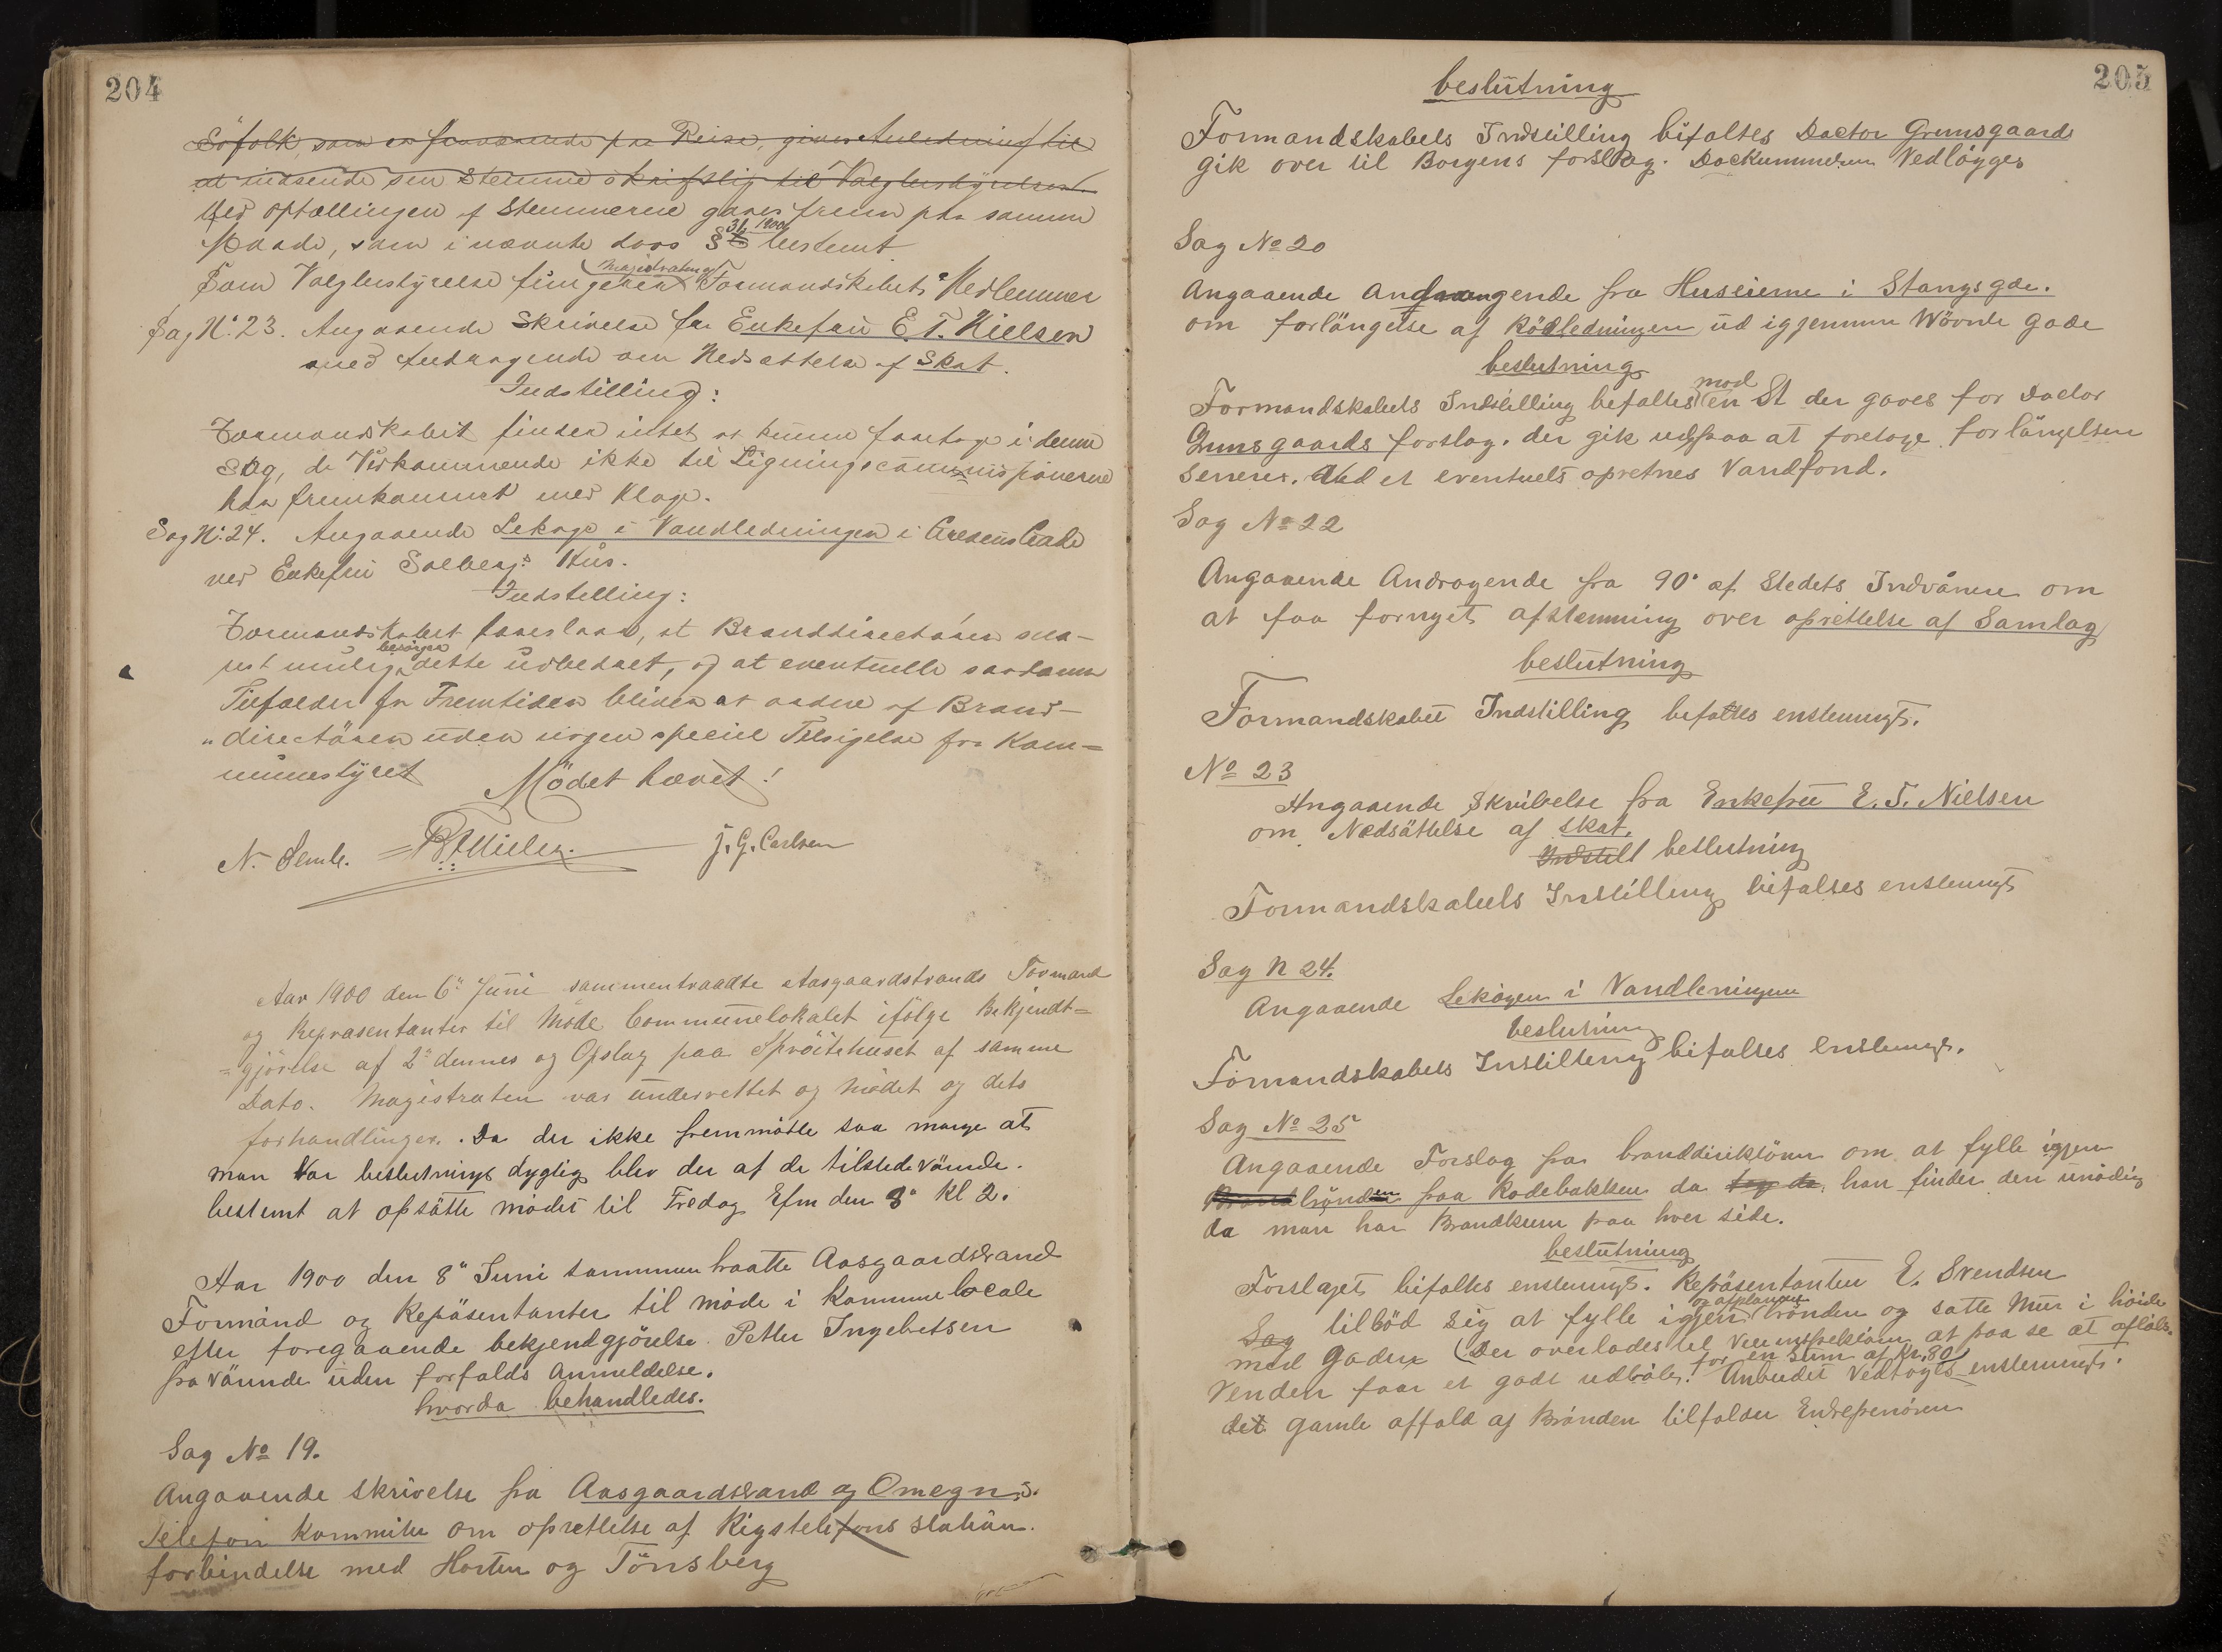 204
Söfolk, som er fraværende paa Reise, gives Anledning til
at indsende sin Stemme skriftlig til Valgbestyrelsen.
Ved Optællingen af Stemmerne gaaes frem paa samme
Maade, som i nævnte Lovs § bestemt
Som Valgbestyrelse fungerer Magistraten og Formandskabets Medlemmer
Sag N: 23. Angaaende Skrivelse fra Enkefru E. T. Nielsen
med Andragende om Nedsættelse af Skat.
Indstilling:
Formandskabet finder intet at kunne foretage i denne
Sag, da Vedkommende ikke til Ligningscommissionerne
har fremkommet med Klage.
Sag N: 24. Angaaende Lekage i Vandledningen i Gade
ved Enkefru Solbergs Hus.
Indstilling:
Formandskabet foreslaar, at Branddirectören sna-
rest mulig besörger dette udbedret, og at eventuelle saadanne
Tilfælder for Fremtiden bliver at ordne af Brand-
"directören uden nogen speciel Tilsigelse fra Kom=
munestyret Mödet hævet!
N. Semb. J. G. Carlsen
Aar 1900 den 6" Juni sammentraadte Aasgaardstrands Formand
og Repræsentanter til Möde Communelokalet ifölge Bekjendt=
=gjörelse af 2" dennes og Opslag paa Spröitehuset af samme
Dato. Magistraten var underrettet og Mödet og dets
forhandlinger. Da der ikke fremmötte saa mange at
man var beslutnings dygtig blev der af de tilstedevärende.
bestemt at opsätte mödet til Fredag Efm den 8" Kl 2.
Aar 1900 den 8" Juni sammen traatte Aasgaardstrand
Formand og Repäsentanter til möde i Kommune locale
efter foregaaende bekjendgjörelse. Petter Ingebretsen
fravärende uden forfalds Anmeldelse.
hvorda behandledes.
Sag No 19.
Angaaende skrivelse fra Aasgaardstrand og Omegns.
Telefon Kommite om oprettelse af Rigstelefons station.
forbindelse med Horten og Tönsberg
205
beslutning
Formandskabets Indstilling bifaltes Doctor Grimsgaards
gik over til Borgens forslag. Dockummeren Vedlägges
Sag No 20
Angaaende Andragende fra Huseierne i Stangs gde.
om forlängelse af Rödledningen ud igjennem Gade
beslutning
Formandskabets Indstilling befaltes mod en St der gaves for Doctor
Grimsgaards forslag. der gik ud paa at foretage forlängelsen
senere. Ved et eventuelt opretnes Vandfond.
Sag No 22
Angaaende Andragende fra 90" af Stedets Indvånere om
at faa fornyet afstemning over oprettelse af Samlag
beslutning
Formandskabet Indstilling befaltes enstemmigt.
No 23
Angaaende Skrivelse fra Enkefru E. T. Nielsen
om Nedsättelse af skat.
Indstill beslutning
Formandskabets Instilling bifaltes enstemmigt
Sag N 24.
Angaaende Lekagen i Vandleningen
beslutning
Formandskabets Instilling bifaltes enstemmigt.
Sag No 25
Angaaende Forslag fra branddirektören om at fylle igjen
Brand brönden paa Rodebakken da han finder den unödig
da man har Brandkum paa hver side.
beslutning
Forslaget bifaltes enstemmigt. Repäsentanten E. Svendsen
Sag tilböd sig at fylle igjen og afplanere brönden og satte Mur i höide
med Gaden (Der overlades til at paa se at aflöbs.
Venden faar et godt udlöb. for en sum af Kr. 80 Anbudet Vedtoges enstemmigt.
det gamle affald af Brönden tilfalder Entreprenören